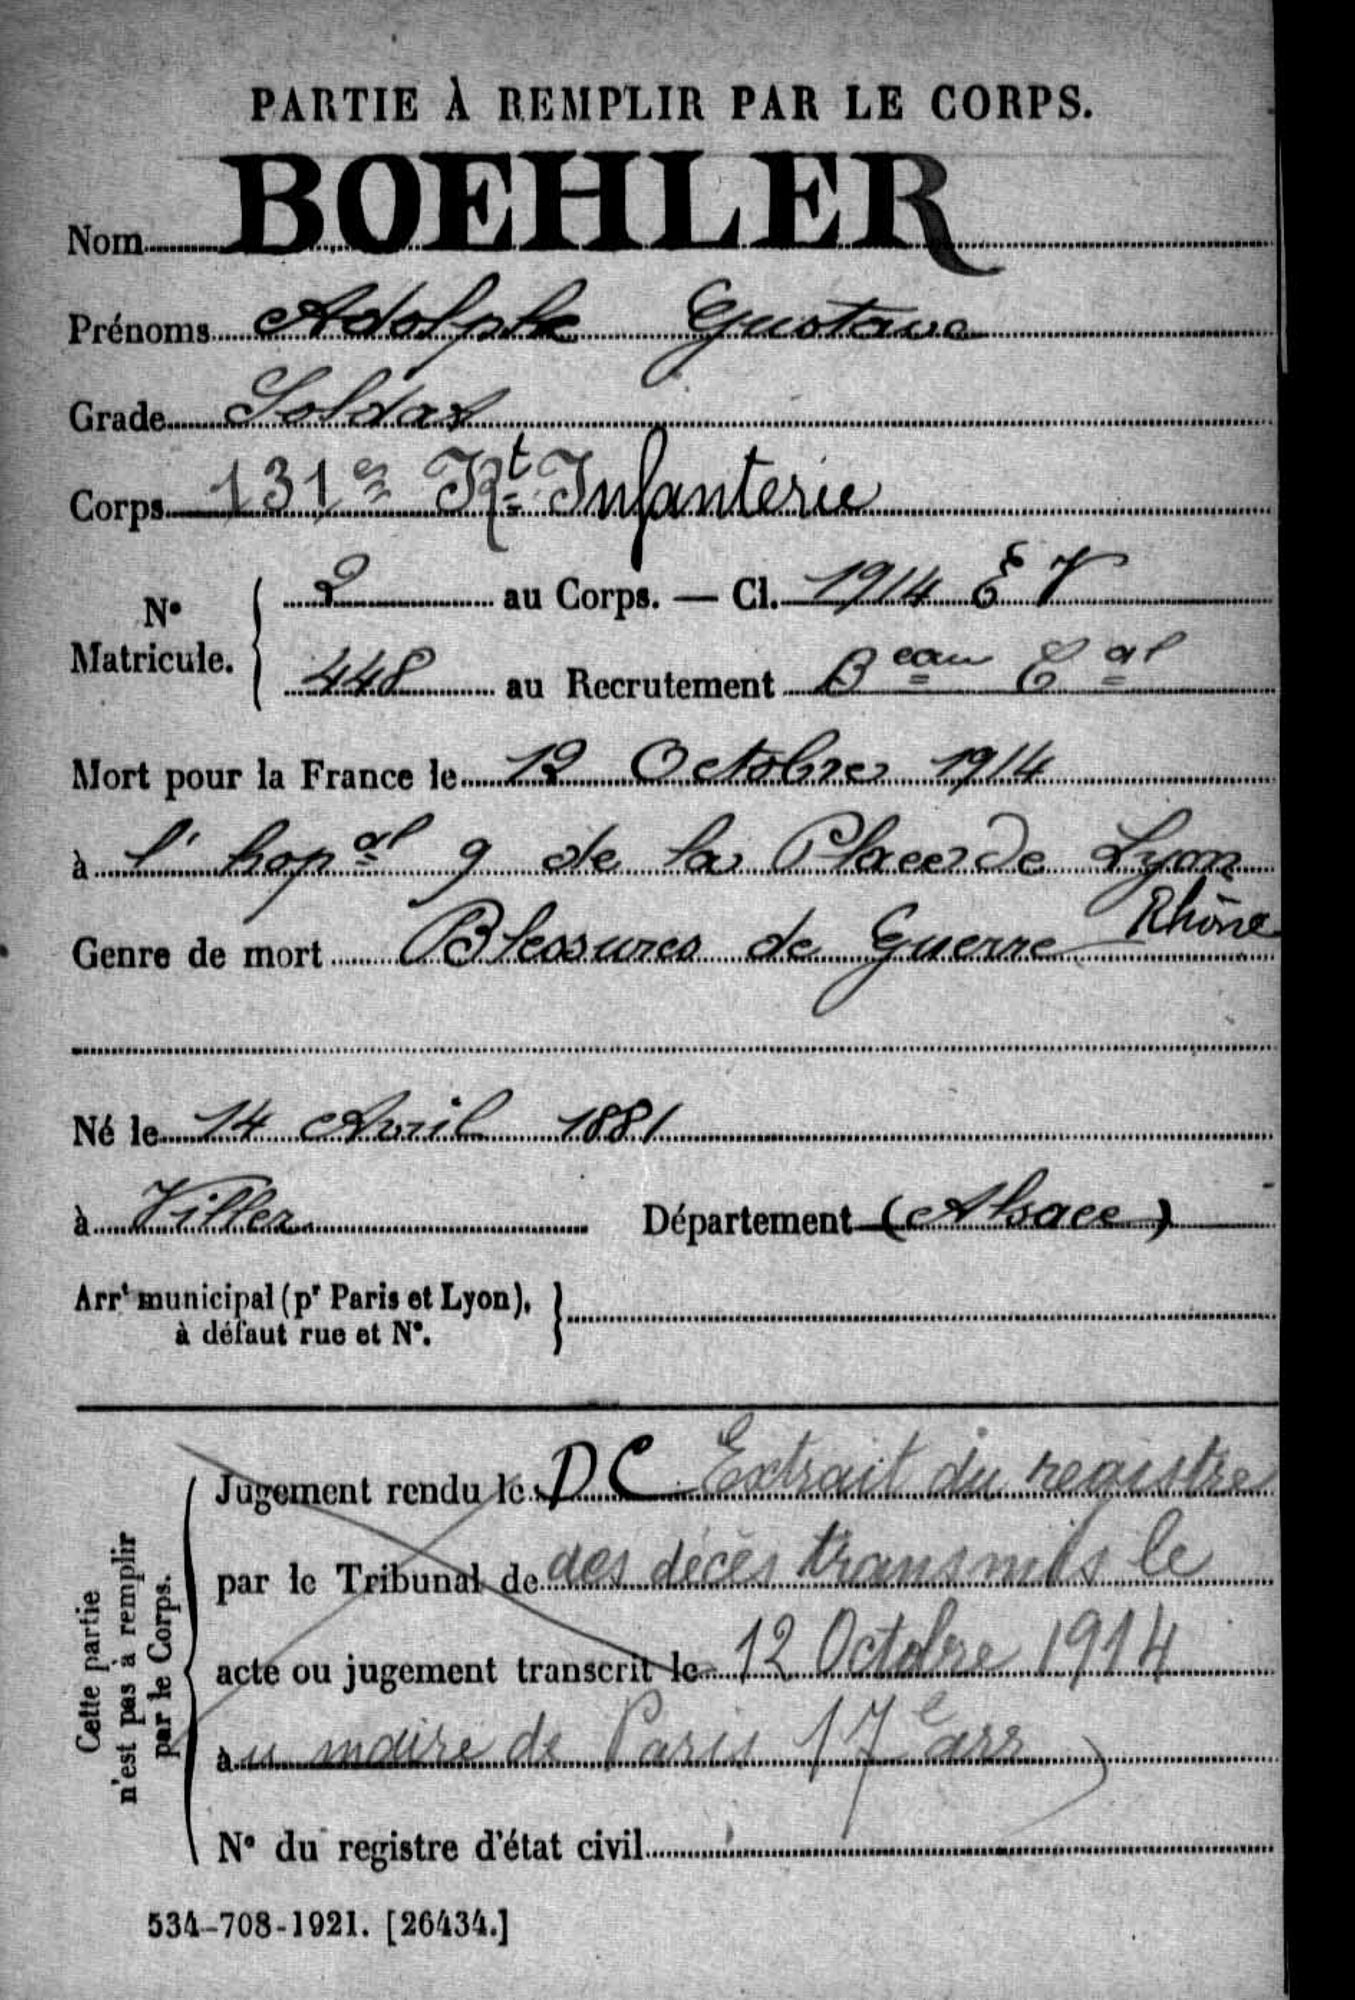 PARTIE À REMPLIR PAR LE CORPS.
Nom BOEHLER
Prénoms Adolphe Gustave
Grade Soldat
Corps 131e Rt Infanterie
N° Matricule. { 2 au Corps. — Cl. 1914 E V
448 au Recrutement Beau Cal
Mort pour la France le 12 Octobre 1914
à l'hopal 9 de la Place de Lyon
Rhône
Genre de mort Blessures de Guerre
Né le 14 Avril 1881
à Viller Département (Alsace)
Arrt municipal (pr Paris et Lyon), à défaut rue et N°.
Cette partie n'est pas à remplir par le Corps.
Jugement rendu le D C Extrait du registre
par le Tribunal de des décès transmis le
acte ou jugement transcrit le 12 Octobre 1914
au maire de Paris 17e arr
N° du registre d'état civil
534-708-1921. [26434.]